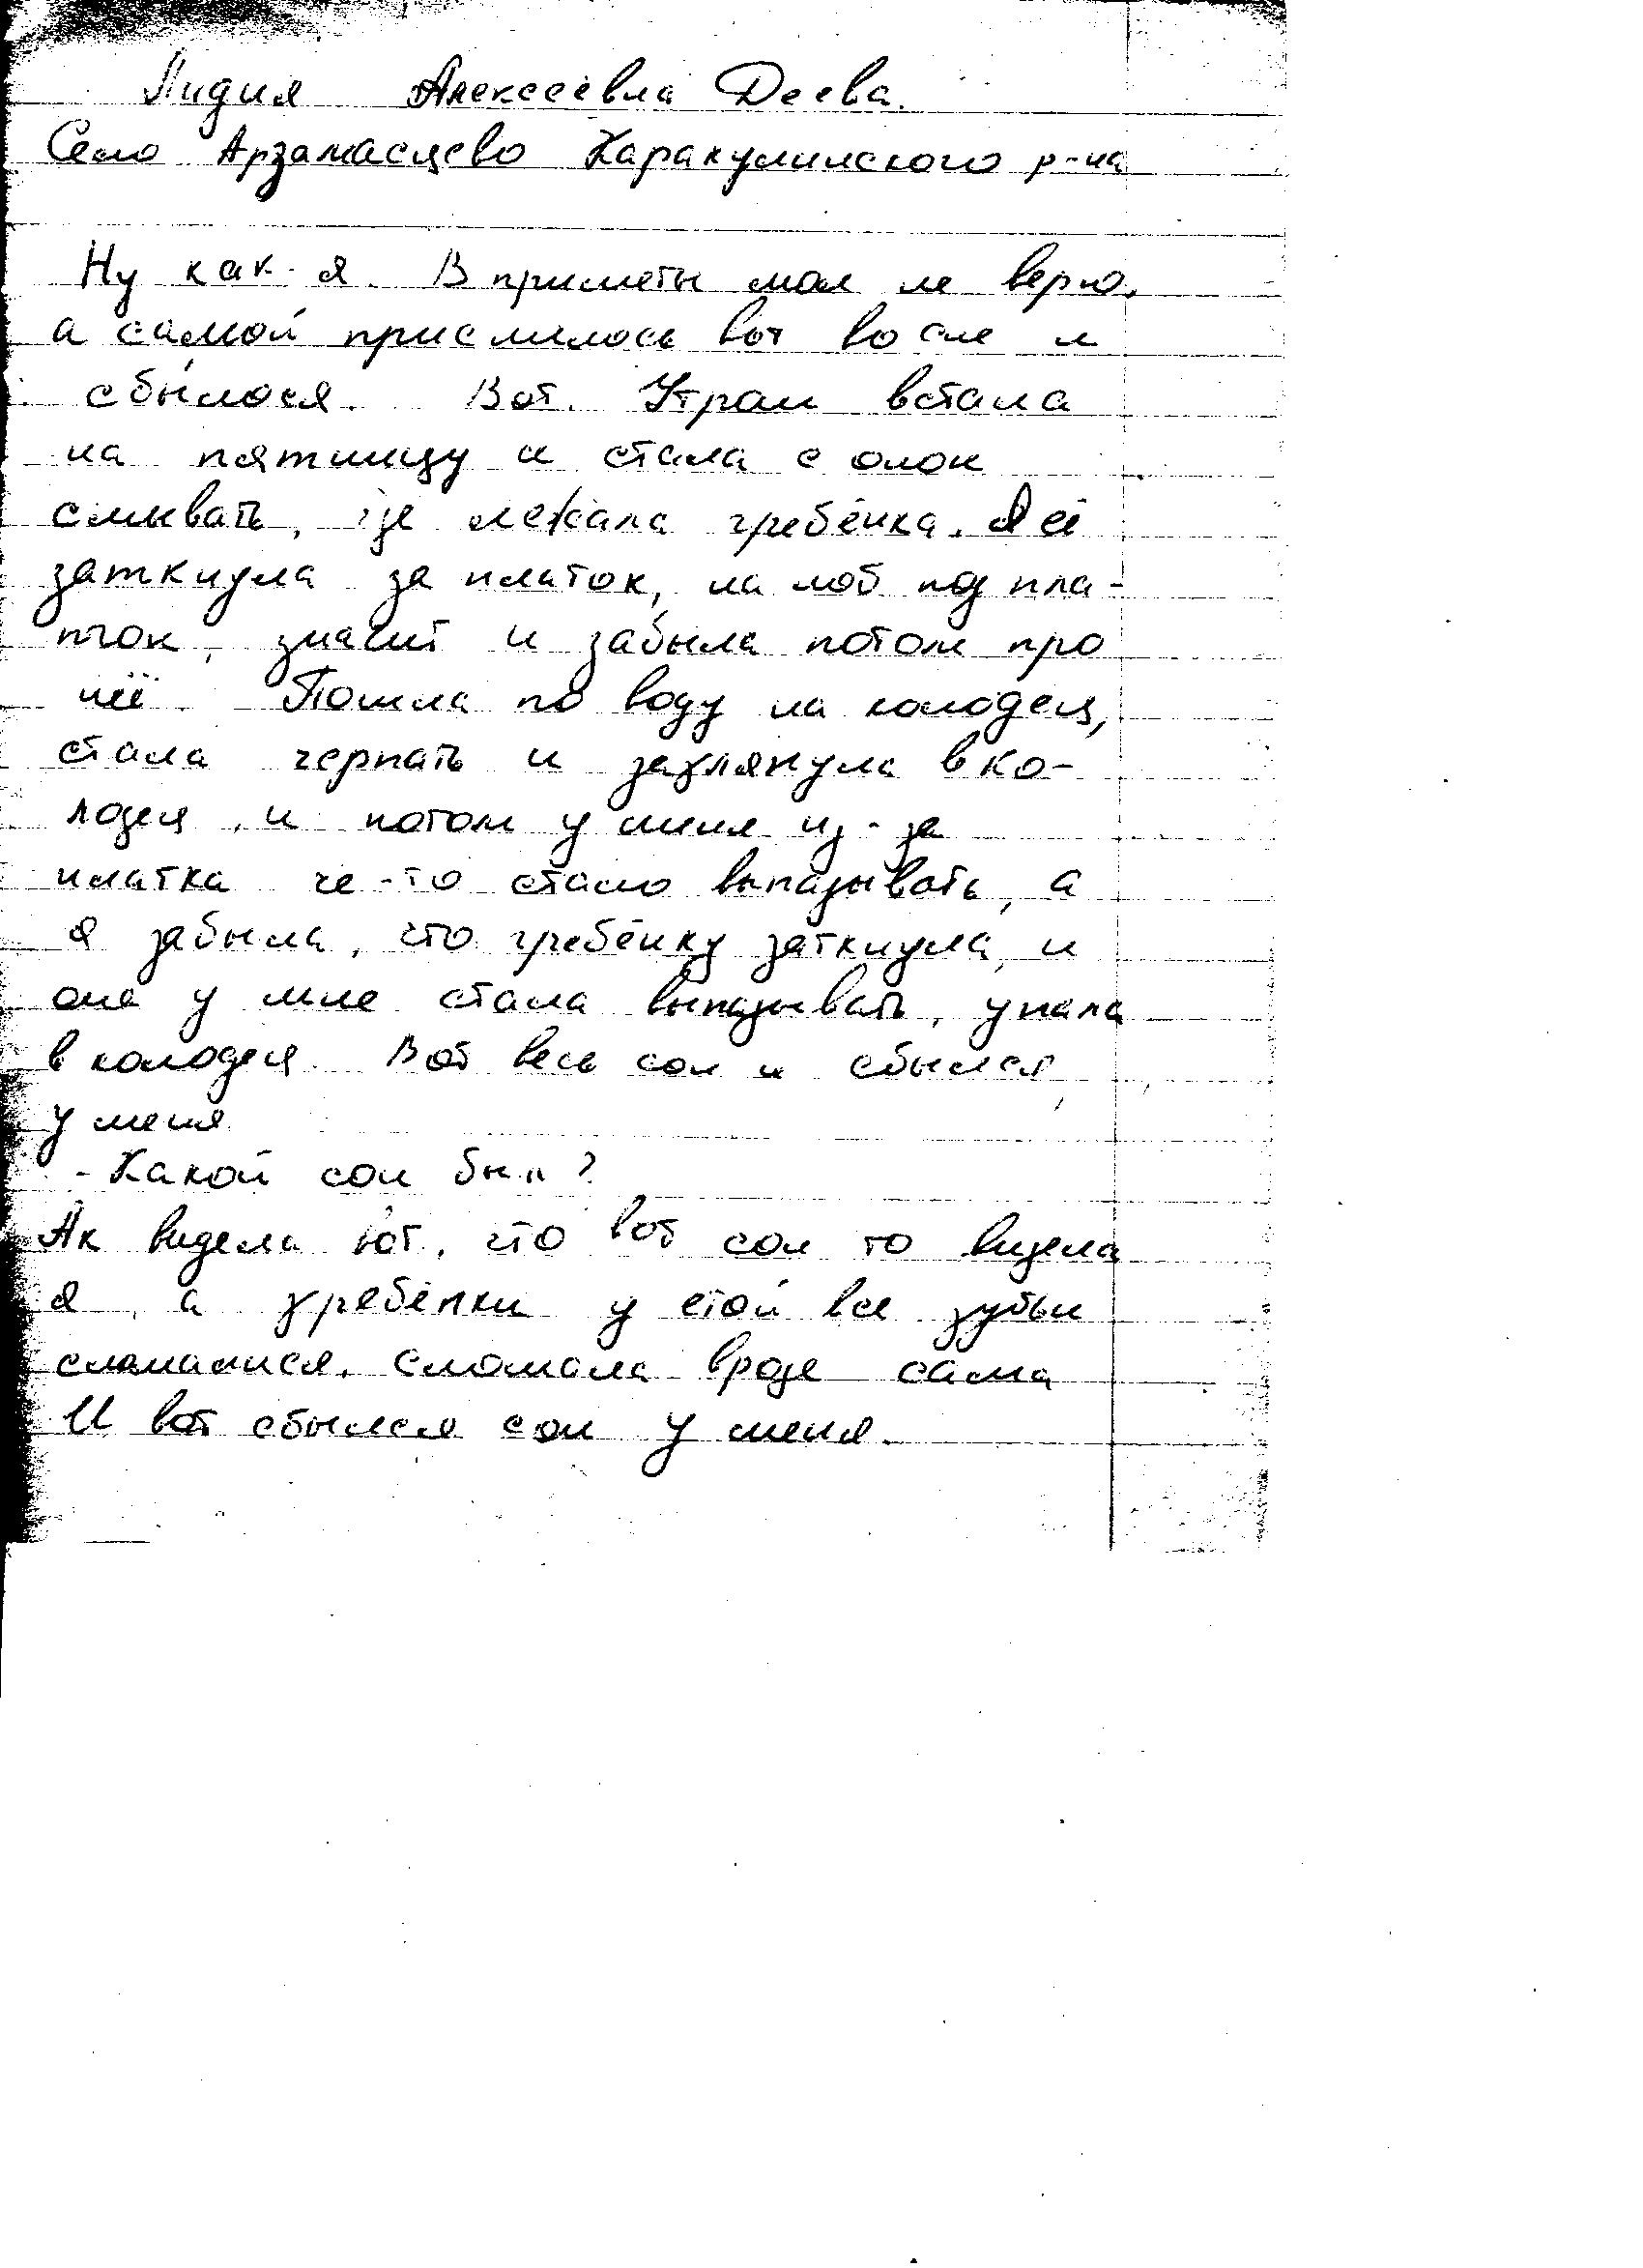 Лидия Алексеевна Деева.
Село Арзамасцево Каракулинского р-на
Ну как я. В приметы мол не верю,
а самой приснилось вот во сне и
сбылося. Вот. Утром встала
на пятницу и стала с окон
смывать, где лежала гребёнка. Я её
заткнула за платок, на лоб под пла-
ток, значит и забыла потом про
неё. Пошла по воду на колодец,
стала черпать и заглянула в ко-
лодец, и потом у меня из-за
платка че-то стало выпазывать, а
я забыла, что гребёнку заткнула, и
она у мне стала выпазывать, упала
в колодец. Вот весь сон и сбылся
у меня.
- Какой сон был?
Ак видела вот, что вот сон то видела
я, а гребёнки у етой все зубьи
сломалися. Сломала вроде сама
И вот сбылся сон у меня.